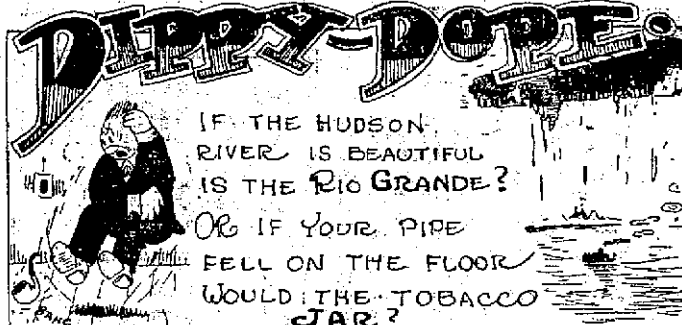 DIPPY-DOPE.
IF THE HUDSON
RIVER IS BEAUTIFUL
IS THE RIO GRANDE?
OR IF YOUR PIPE
FELL ON THE FLOOR
WOULD THE TOBACCO
JAR?